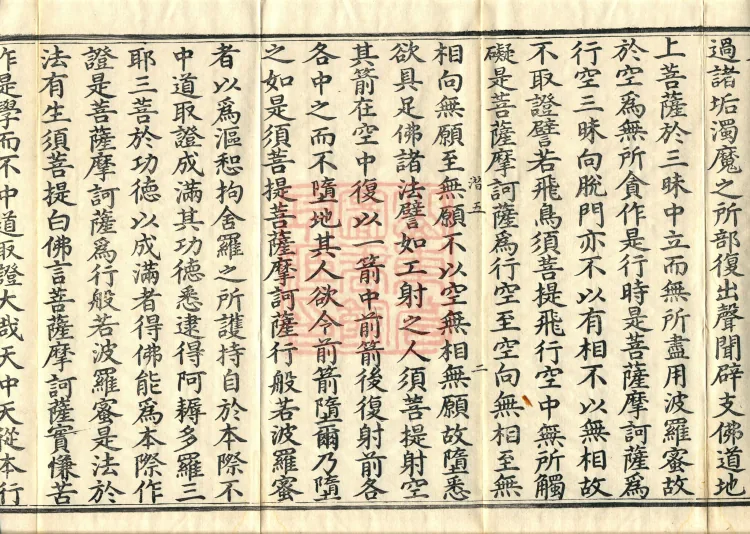 過諸垢濁魔之所部復出聲聞辟支佛道地
上菩薩於三昧中立而無所盡用波羅蜜故
於空爲無所貪作是行時是菩薩摩訶薩爲
行空三昧向脫門亦不以有相不以無相故
不取證譬若飛鳥須菩提飛行空中無所觸
礙是菩薩摩訶薩爲行空至空向無相至無
潛五
二
相向無願至無願不以空無相無願故墮悉
欲具足佛諸法譬如工射之人須菩提射空
其箭在空中復以一箭中前箭後復射前各
各中之而不墮地其人欲令前箭墮爾乃墮
之如是須菩提菩薩摩訶薩行般若波羅蜜
者以爲漚惒拘舍羅之所護持自於本際不
中道取證成滿其功德悉逮得阿耨多羅三
耶三菩於功德以成滿者得佛能爲本際作
證是菩薩摩訶薩爲行般若波羅蜜是法於
法有生須菩提白佛言菩薩摩訶薩實慊苦
作是學而不中道取證大哉天中天從本行